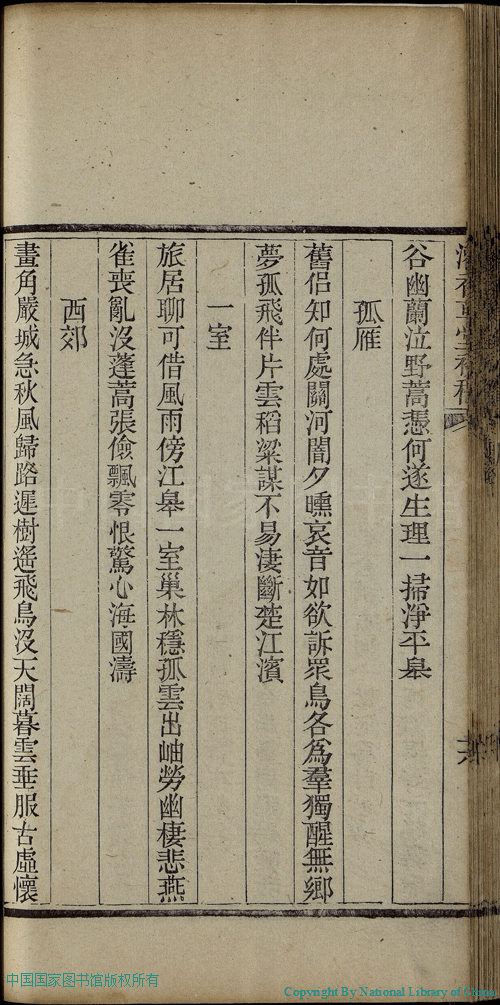 谷幽蘭泣野蒿憑何遂生理一掃淨平皋
孤雁
舊侶知何處關河闇夕曛哀音如欲訴眾鳥各為羣獨醒無鄉
夢孤飛伴片雲稻粱謀不易淒斷楚江濱
一室
旅居聊可借風雨傍江皋一室巢林穩孤雲出岫勞幽棲悲燕
雀喪亂沒蓬蒿張儉飄零恨驚心海國濤
西郊
畫角嚴城急秋風歸路遲樹遙飛鳥沒天闊暮雲垂服古虛懷
中国国家图书馆版权所有
Copyright By National Library of China